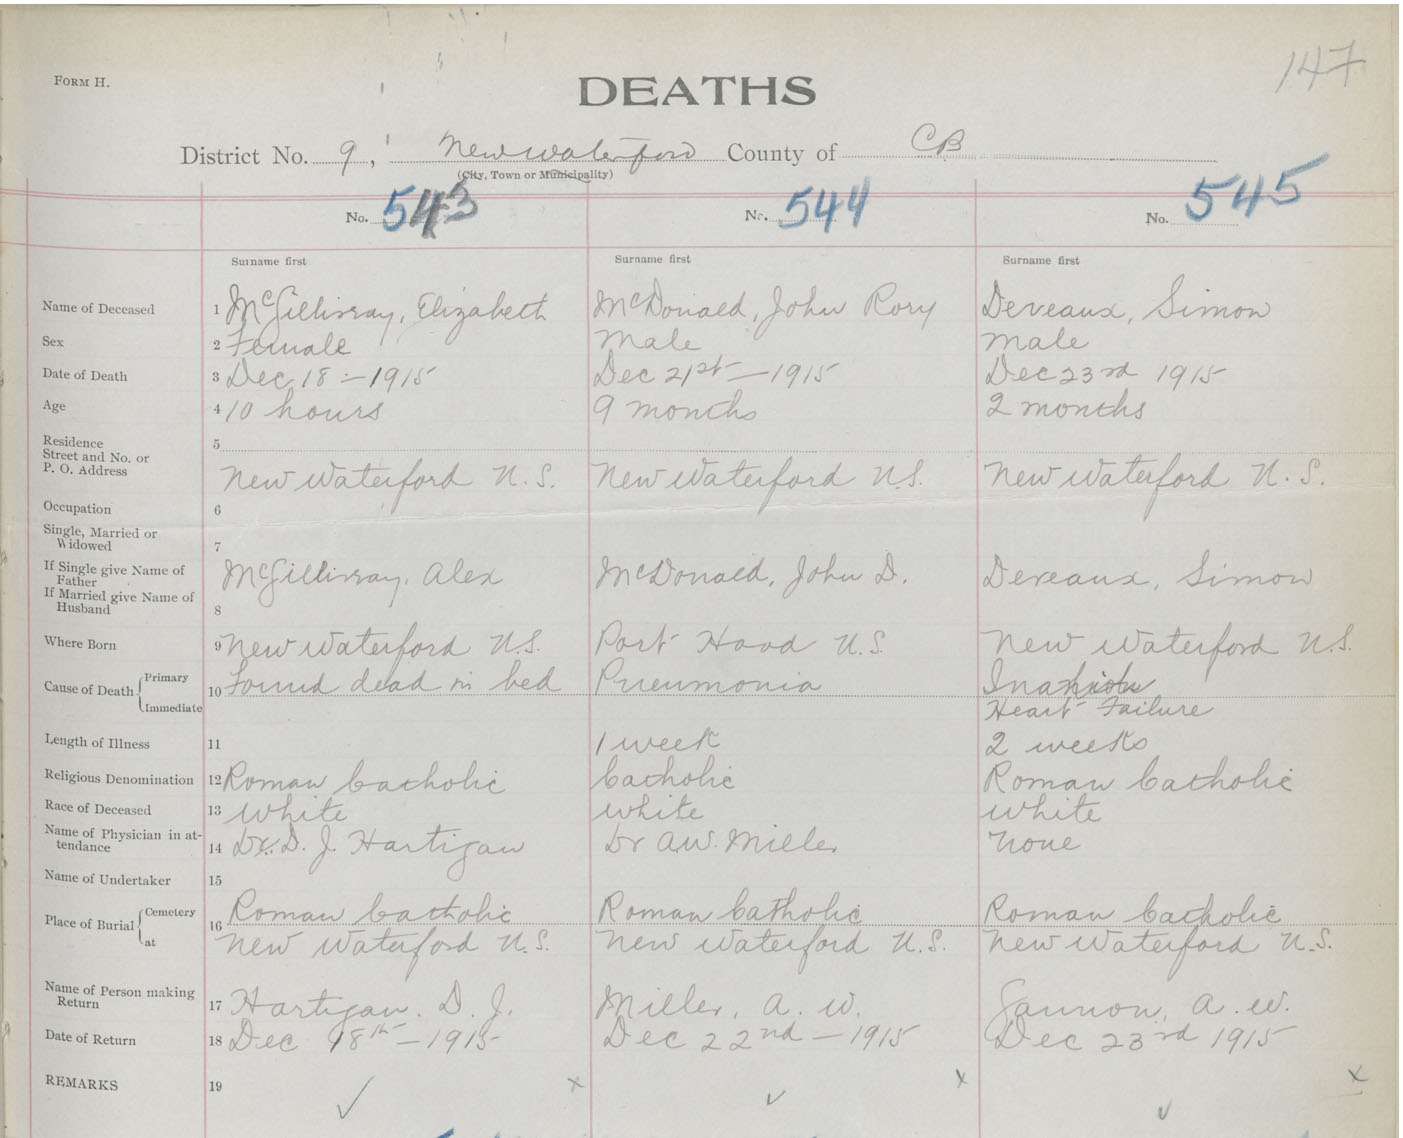 147
FORM H.
DEATHS
District No. 9, New Waterford County of CB
(City, Town or Municipality)
No. 543 No. 544 No. 545
Surname first Surname first Surname first
Name of Deceased 1 McGillivray, Elizabeth McDonald, John Rory Deveaux, Simon
Sex 2 Female Male Male
Date of Death 3 Dec 18 - 1915 Dec 21st - 1915 Dec 23rd 1915
Age 4 10 hours 9 months 2 months
Residence 5
Street and No. or
P. O. Address New Waterford N.S. New Waterford N.S. New Waterford N.S.
Occupation 6
Single, Married or
Widowed 7
If Single give Name of
Father McGillivray, Alex McDonald, John D. Deveaux, Simon
If Married give Name of
Husband 8
Where Born 9 New Waterford N.S. Port Hood N.S. New Waterford N.S.
Cause of Death Primary 10 Found dead in bed Pneumonia Inanition
Immediate Heart Failure
Length of Illness 11 1 week 2 weeks
Religious Denomination 12 Roman Catholic Catholic Roman Catholic
Race of Deceased 13 White White White
Name of Physician in at-
tendance 14 Dr. D. J. Hartigan Dr A.W. Miller None
Name of Undertaker 15
Place of Burial Cemetery 16 Roman Catholic Roman Catholic Roman Catholic
at New Waterford N.S. New Waterford N.S. New Waterford N.S.
Name of Person making
Return 17 Hartigan. D. J. Miller, A. W. Gannon, A. W.
Date of Return 18 Dec 18th - 1915 Dec 22nd - 1915 Dec 23rd 1915
REMARKS 19 ✓ x ✓ x ✓ x